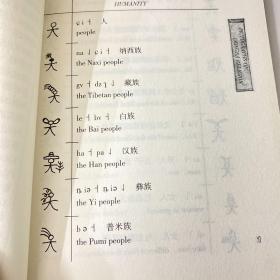 HUMANITY
ɕi ˧ 人
people
na ˩ ɕi ˧ 纳西族
the Naxi people
gv ˧ dʐɿ ˩ 藏族
the Tibetan people
le ˧ bv ˧ 白族
the Bai people
ha ˧ pa ˩ 汉族
the Han people
ȵiə ˧ ȵiə ˩ 彝族
the Yi people
bə ˧ 普米族
the Pumi people